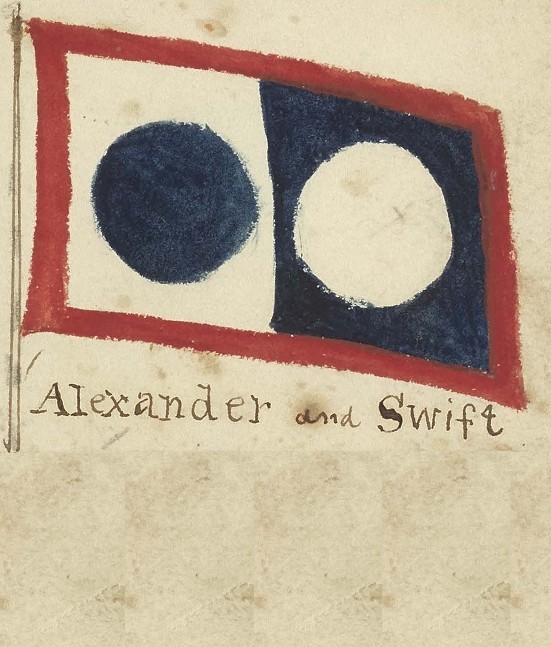 Alexander and Swift